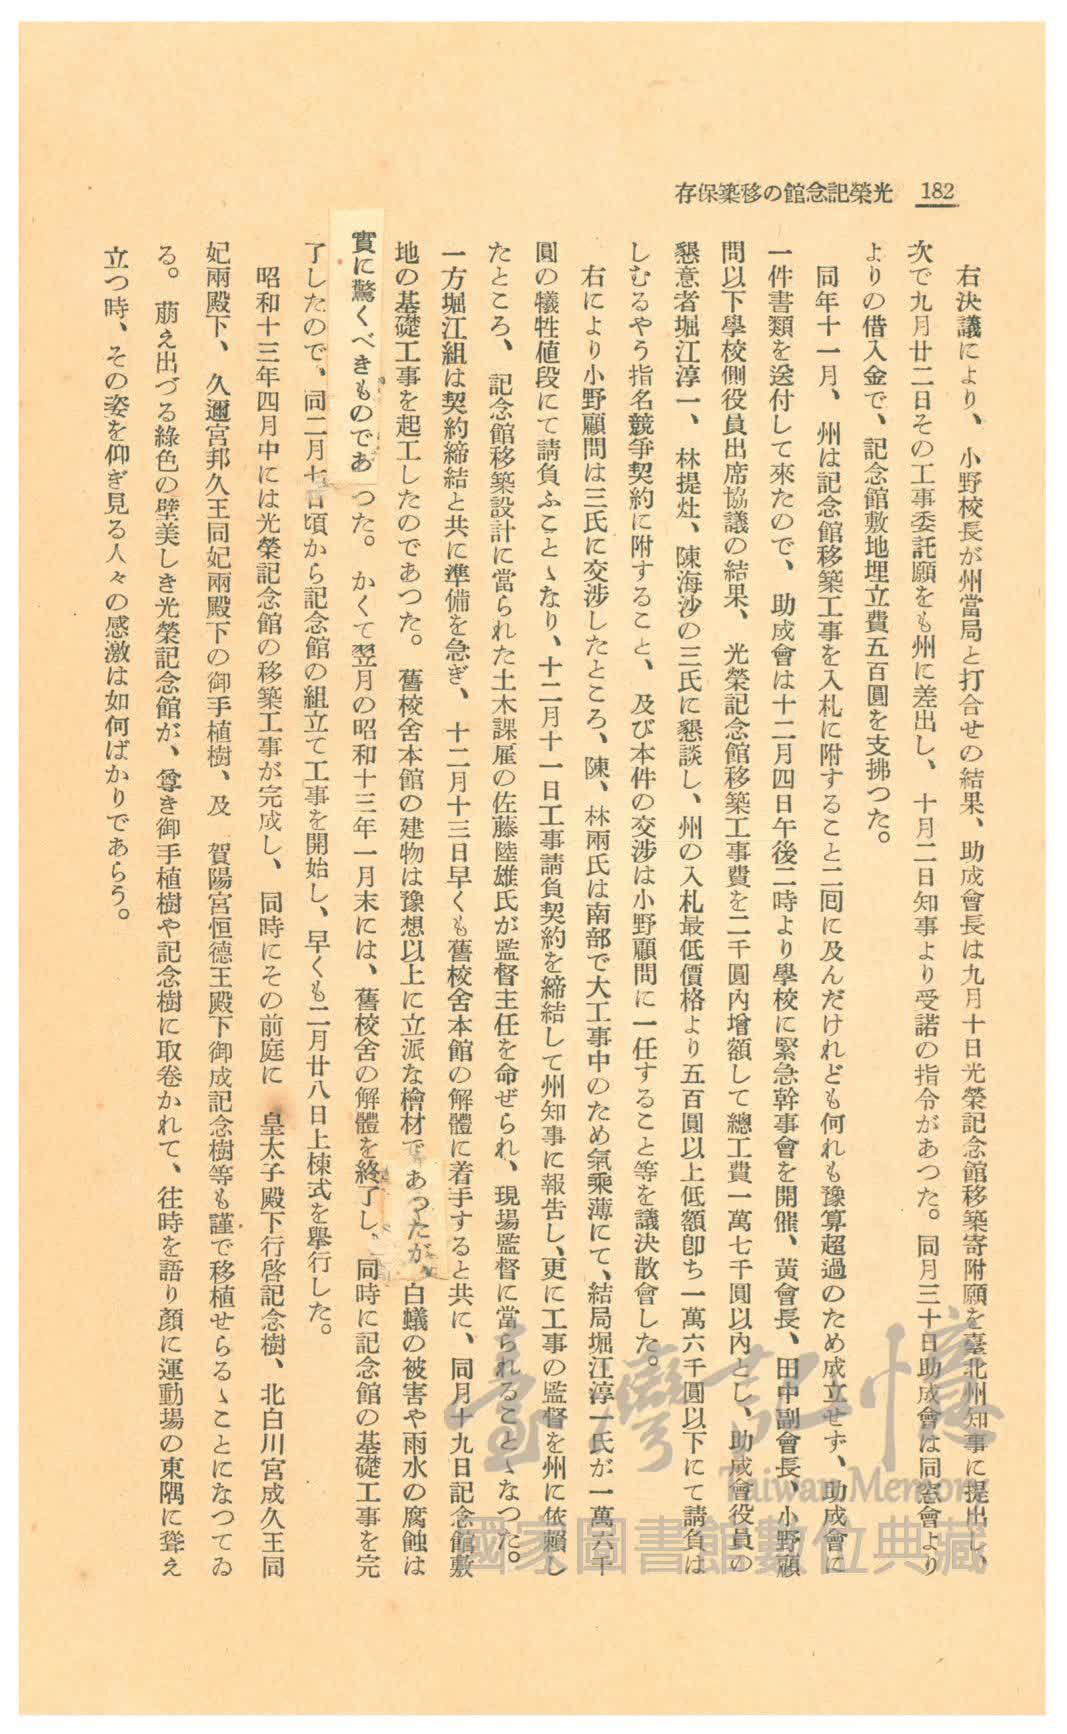 182 光榮記念館の移築保存
右決議により、小野校長が州當局と打合せの結果、助成會長は九月十日光榮記念館移築寄附願を臺北州知事に提出し、
次で九月廿二日その工事委託願をも州に差出し、十月二日知事より受諾の指令があつた。同月三十日助成會は同窓會より
よりの借入金で、記念館敷地埋立費五百圓を支拂つた。
同年十一月、州は記念館移築工事を入札に附すること二囘に及んだけれども何れも豫算超過のため成立せず、助成會に
一件書類を送付して來たので、助成會は十二月四日午後二時より學校に緊急幹事會を開催、黄會長、田中副會長、小野顧
問以下學校側役員出席協議の結果、光榮記念館移築工事費を二千圓內增額して總工費一萬七千圓以內とし、助成會役員の
懇意者堀江淳一、林提灶、陳海沙の三氏に懇談し、州の入札最低價格より五百圓以上低額卽ち一萬六千圓以下にて請負は
しむるやう指名競爭契約に附すること、及び本件の交涉は小野顧問に一任すること等を議決散會した。
右により小野顧問は三氏に交涉したところ、陳、林兩氏は南部で大工事中のため氣乘薄にて、結局堀江淳一氏が一萬六千
圓の犧牲値段にて請負ふことゝなり、十二月十一日工事請負契約を締結して州知事に報告し、更に工事の監督を州に依賴し
たところ、記念館移築設計に當られた土木課雇の佐藤陸雄氏が監督主任を命ぜられ、現場監督に當られることゝなつた。
一方堀江組は契約締結と共に準備を急ぎ、十二月十三日早くも舊校舍本館の解體に着手すると共に、同月十九日記念館敷
地の基礎工事を起工したのであつた。舊校舍本館の建物は豫想以上に立派な檜材であつたが、白蟻の被害や雨水の腐蝕は
實に驚くべきものであつた。かくて翌月の昭和十三年一月末には、舊校舍の解體を終了し、同時に記念館の基礎工事を完
了したので、同二月七日頃から記念館の組立て工事を開始し、早くも二月廿八日上棟式を擧行した。
昭和十三年四月中には光榮記念館の移築工事が完成し、同時にその前庭に 皇太子殿下行啓記念樹、北白川宮成久王同
妃兩殿下、久邇宮邦久王同妃兩殿下の御手植樹、及 賀陽宮恒德王殿下御成記念樹等も謹で移植せらるゝことになつてゐ
る。萠え出づる綠色の壁美しき光榮記念館が、尊き御手植樹や記念樹に取卷かれて、往時を語り顏に運動場の東隅に聳え
立つ時、その姿を仰ぎ見る人々の感激は如何ばかりであらう。
臺灣記憶
Taiwan Memory
國家圖書館數位典藏